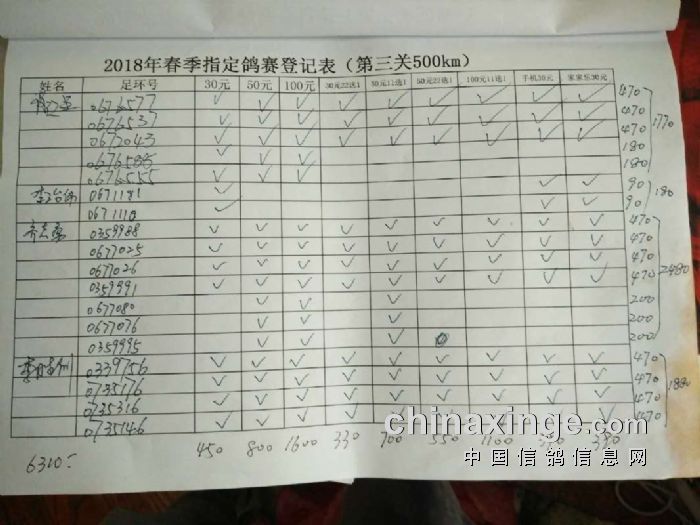 2018年春季指定鸽赛登记表（第三关500km）
姓名 足环号 30元 50元 100元 30元22选1 50元11选1 50元22选1 100元11选1 手机30元 家家乐30元
0676577 ✓ ✓ ✓ ✓ ✓ ✓ ✓ ✓ ✓ 470
0676537 ✓ ✓ ✓ ✓ ✓ ✓ ✓ ✓ ✓ 470
0672043 ✓ ✓ ✓ ✓ ✓ ✓ ✓ ✓ ✓ 470 1770
0676585 ✓ ✓ 180
0676555 ✓ ✓ ✓ 180
0671181 ✓ ✓ ✓ 90
✓ ✓ ✓ 90 180
0359988 ✓ ✓ ✓ ✓ ✓ ✓ ✓ ✓ ✓ 470
0677025 ✓ ✓ ✓ ✓ ✓ ✓ ✓ ✓ ✓ 470
0677026 ✓ ✓ ✓ ✓ ✓ ✓ ✓ ✓ ✓ 470
0359991 ✓ ✓ ✓ ✓ ✓ ✓ ✓ ✓ ✓ 470 2480
0677080 ✓ ✓ ✓ 200
0677076 ✓ ✓ ✓ 200
0359995 ✓ ✓ ✓ 200
0339756 ✓ ✓ ✓ ✓ ✓ ✓ ✓ ✓ ✓ 470
0735176 ✓ ✓ ✓ ✓ ✓ ✓ ✓ ✓ ✓ 470
0735316 ✓ ✓ ✓ ✓ ✓ ✓ ✓ ✓ ✓ 470 1880
0735146 ✓ ✓ ✓ ✓ ✓ ✓ ✓ ✓ ✓ 470
6310 450 800 1600 330 700 550 1100
chinaxinge.com
中国信鸽信息网